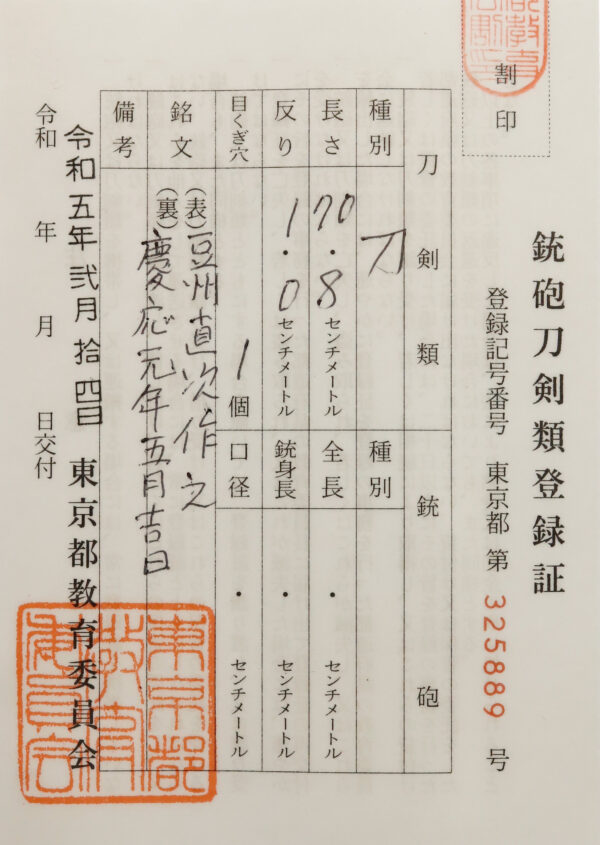 割印
銃砲刀剣類登録証
登録記号番号 東京都 第 325889 号
刀剣類
銃砲
種別 刀
種別
長さ 70.8 センチメートル
全長 ・ センチメートル
反り 1.0 センチメートル
銃身長 ・ センチメートル
目くぎ穴 1 個
口径 ・ センチメートル
銘文 (表) 豆州直次作之
(裏) 慶応元年五月吉日
備考
令和五年弐月拾四日 東京都教育委員会
令和 年 月 日交付
東京都
教育
委員会